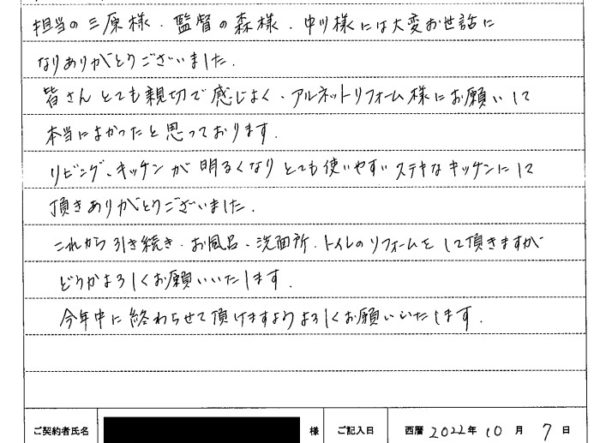 担当の三原様、監督の森様、中川様には大変お世話に
なりありがとうございました。
皆さんとても親切で感じよく、アルネットリフォーム様にお願いして
本当によかったと思っております。
リビング、キッチンが明るくなりとても使いやすいステキなキッチンにして
頂きありがとうございました。
これから引き続き、お風呂、洗面所、トイレのリフォームをして頂きますが
どうかよろしくお願いいたします。
今年中に終わらせて頂けますようよろしくお願いいたします。
ご契約者氏名 様 ご記入日 西暦 2022年 10月 7日